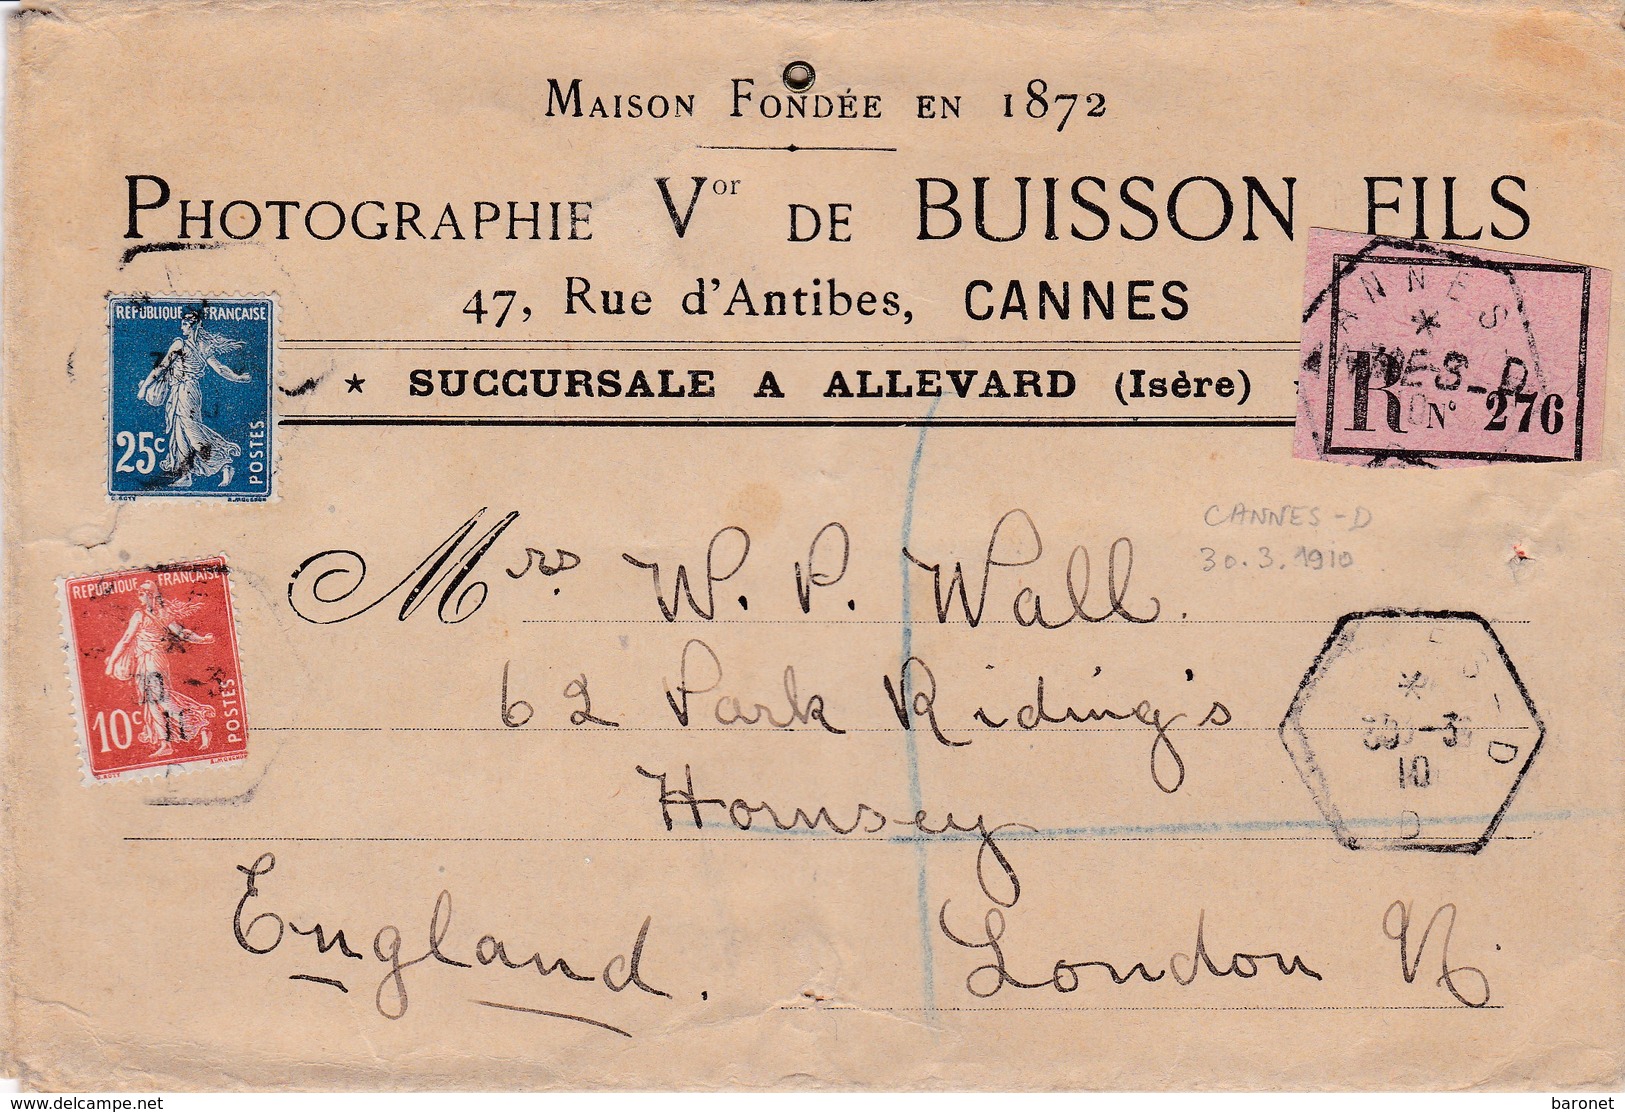 MAISON FONDÉE EN 1872
PHOTOGRAPHIE Vor DE BUISSON FILS
47, Rue d'Antibes, CANNES
★ SUCCURSALE A ALLEVARD (Isère)
REPUBLIQUE FRANÇAISE
25c
POSTES
REPUBLIQUE FRANÇAISE
10c
POSTES
30
10
CANNES
R No 276
CANNES - D
30.3.1910
Mrs. W. P. Wall.
62 Park Riding's
Hornsey
England. London N.
30 - 3
10
D
www.delcampe.net
baronet